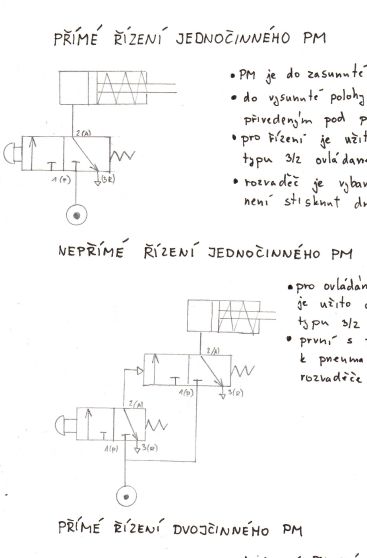 PŘÍMÉ ŘÍZENÍ JEDNOČINNÉHO PM
• PM je do zasunuté
• do vysunuté polohy
přivedeným pod p
• pro řízení je užit
typu 3/2 ovládan
• rozvaděč je vybav
není stisknut dr
2(A)
1(P)
3(R)
NEPŘÍMÉ ŘÍZENÍ JEDNOČINNÉHO PM
• pro ovládán
je užito
typu 3/2
• první s
k pneuma
rozvaděče
2(A)
1(P)
3(R)
2(A)
1(P)
3(R)
PŘÍMÉ ŘÍZENÍ DVOJČINNÉHO PM